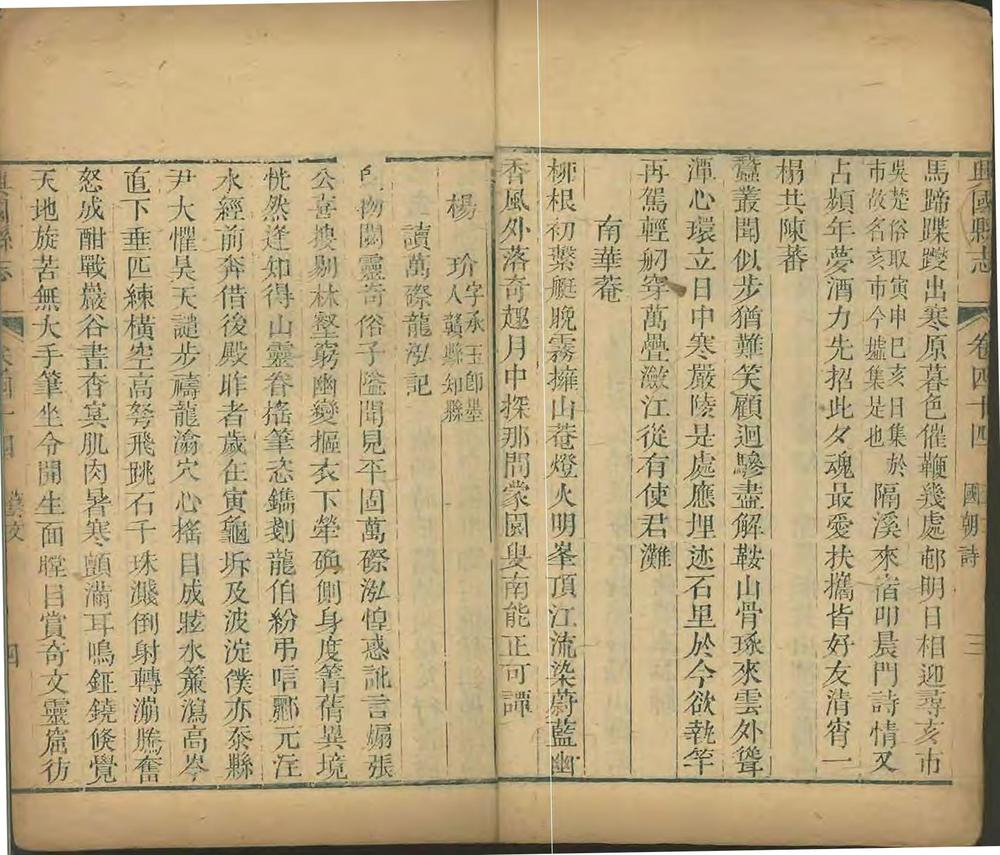 興國縣志 卷四十四 國朝詩 三
馬蹄蹀躞出寒原暮色催鞭幾處邨明日相迎尋亥市
吳楚俗取寅申巳亥日集於
市故名亥市今墟集是也
隔溪來宿叩晨門詩情又
占頻年夢酒力先招此夕魂最愛扶攜皆好友清宵一
榻共陳蕃
蠶叢聞似步猶難笑顧迴驂盡解鞍山骨琢來雲外聳
潭心環立日中寒嚴陵是處應埋迹石里於今欲執竿
再駕輕舠穿萬疊瀲江從有使君灘
南華菴
柳根初繫艇晚霧擁山菴燈火明峯頂江流染蔚藍幽
香風外落奇趣月中探那問蒙園叟南能正可譚
楊玠
字承玉即墨
人贛縣知縣
讀萬磜龍泓記
物閟靈奇俗子隘聞見平固萬磜泓惶惑訛言煽張
公喜搜剔林壑窮幽變摳衣下犖确側身度箐蒨異境
恍然逢如得山靈眷搖筆恣鐫剗龍伯紛弔唁酈元注
水經前奔借後殿昨者歲在寅龜坼及波淀僕亦忝縣
尹大懼昊天譴步禱龍瀹穴心搖目成眩水簾瀉高岑
直下垂匹練橫空高弩飛跳石千珠濺倒射轉漰騰奮
怒成酣戰嚴谷晝杳冥肌肉暑寒顫滿耳鳴鉦鐃倏覺
天地旋苦無大手筆坐令開生面瞠目賞奇文靈窟彷
興國縣志 卷四十四 藝文 四